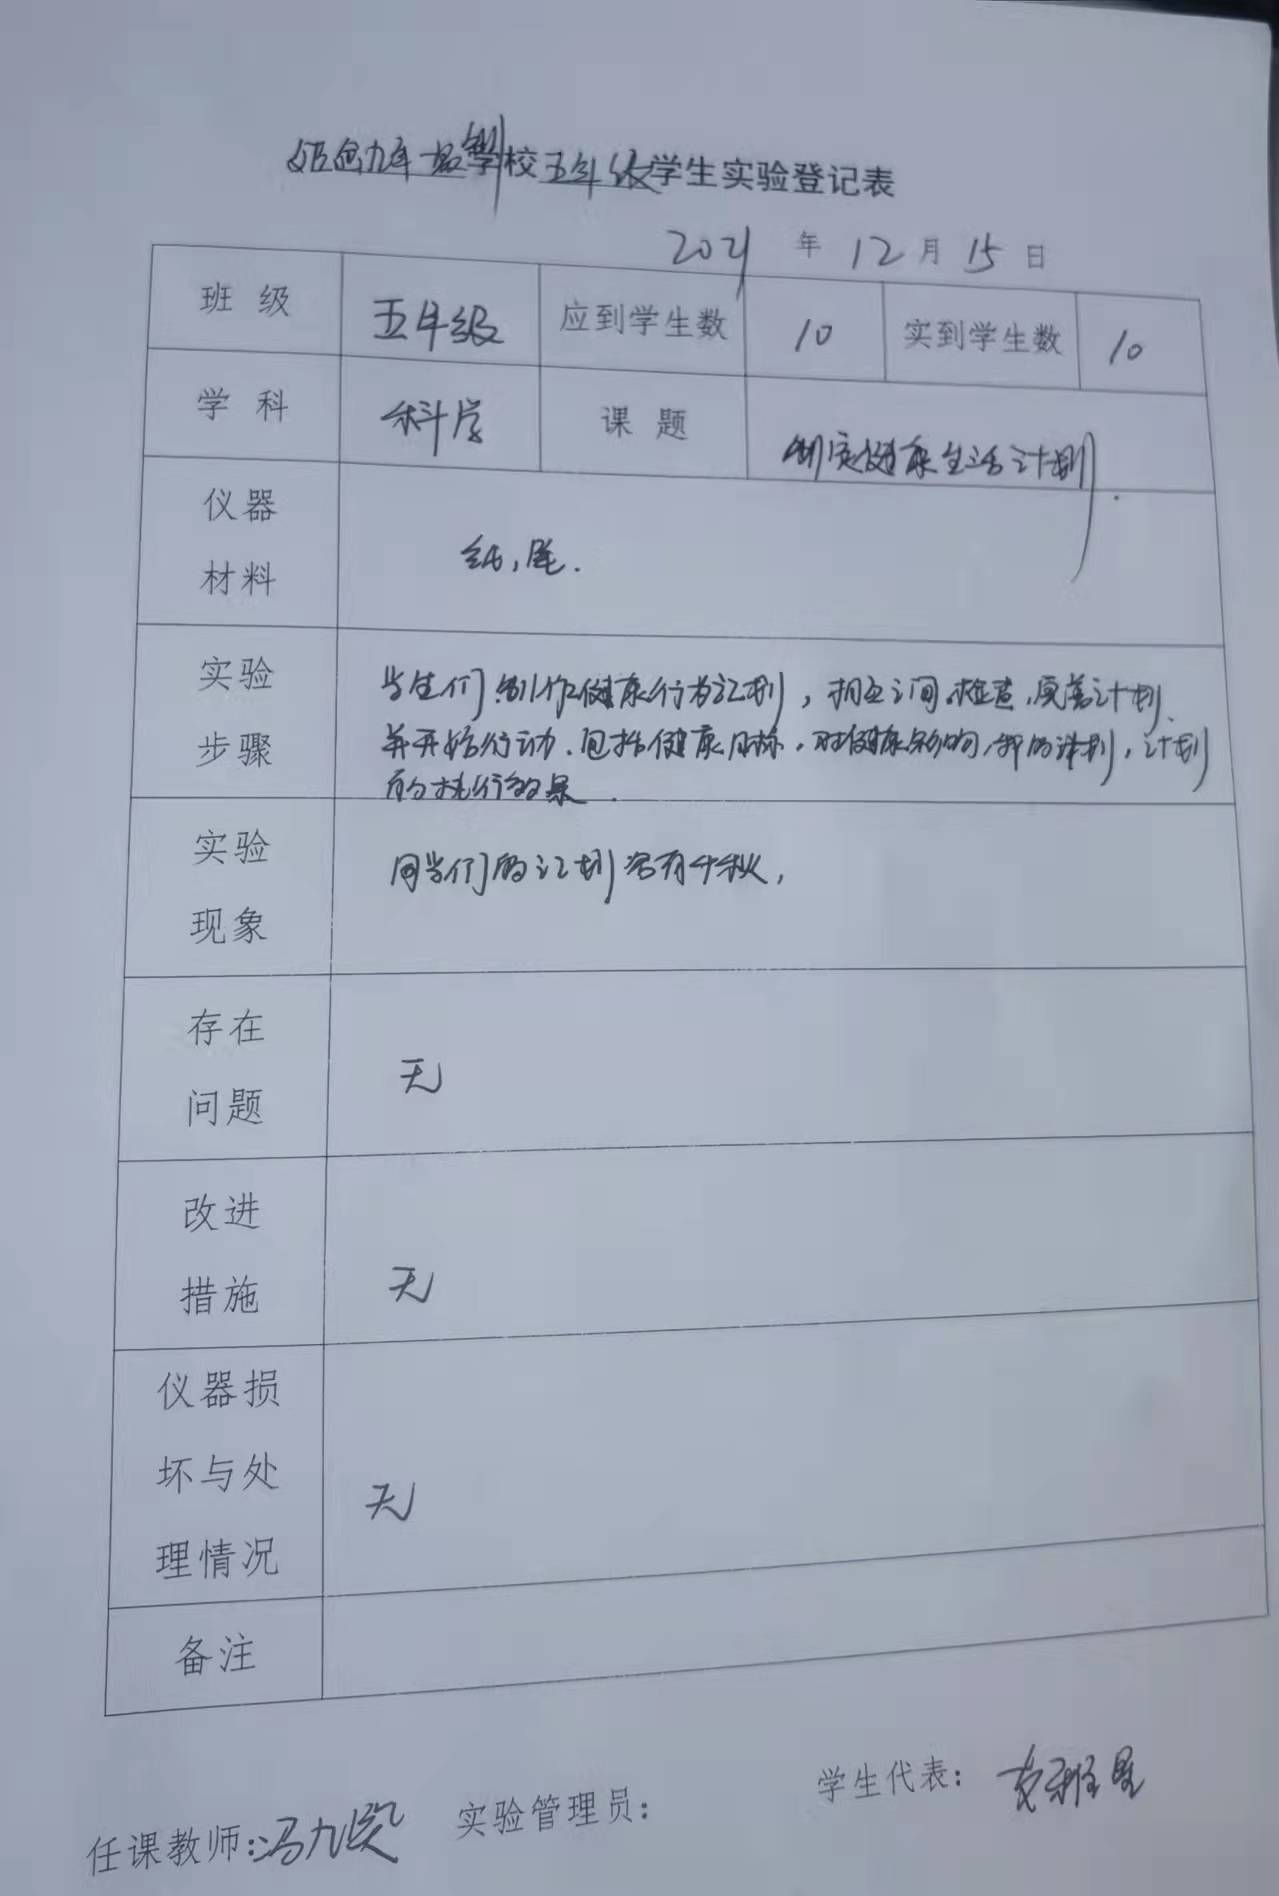 姬色九年一贯制学校五年级学生实验登记表
2021 年 12 月 15 日
班 级 五年级 应到学生数 10 实到学生数 10
学 科 科学 课 题 制定健康生活计划.
仪器
材料
纸,笔.
实验
步骤
学生们制作健康行为计划,相互之间检查,完善计划、
并开始行动.包括健康目标,对健康影响,我的计划,计划
的执行效果.
实验
现象
同学们的计划各有千秋,
存在
问题
无
改进
措施
无
仪器损
坏与处
理情况
无
备注
任课教师:冯九 实验管理员: 学生代表: